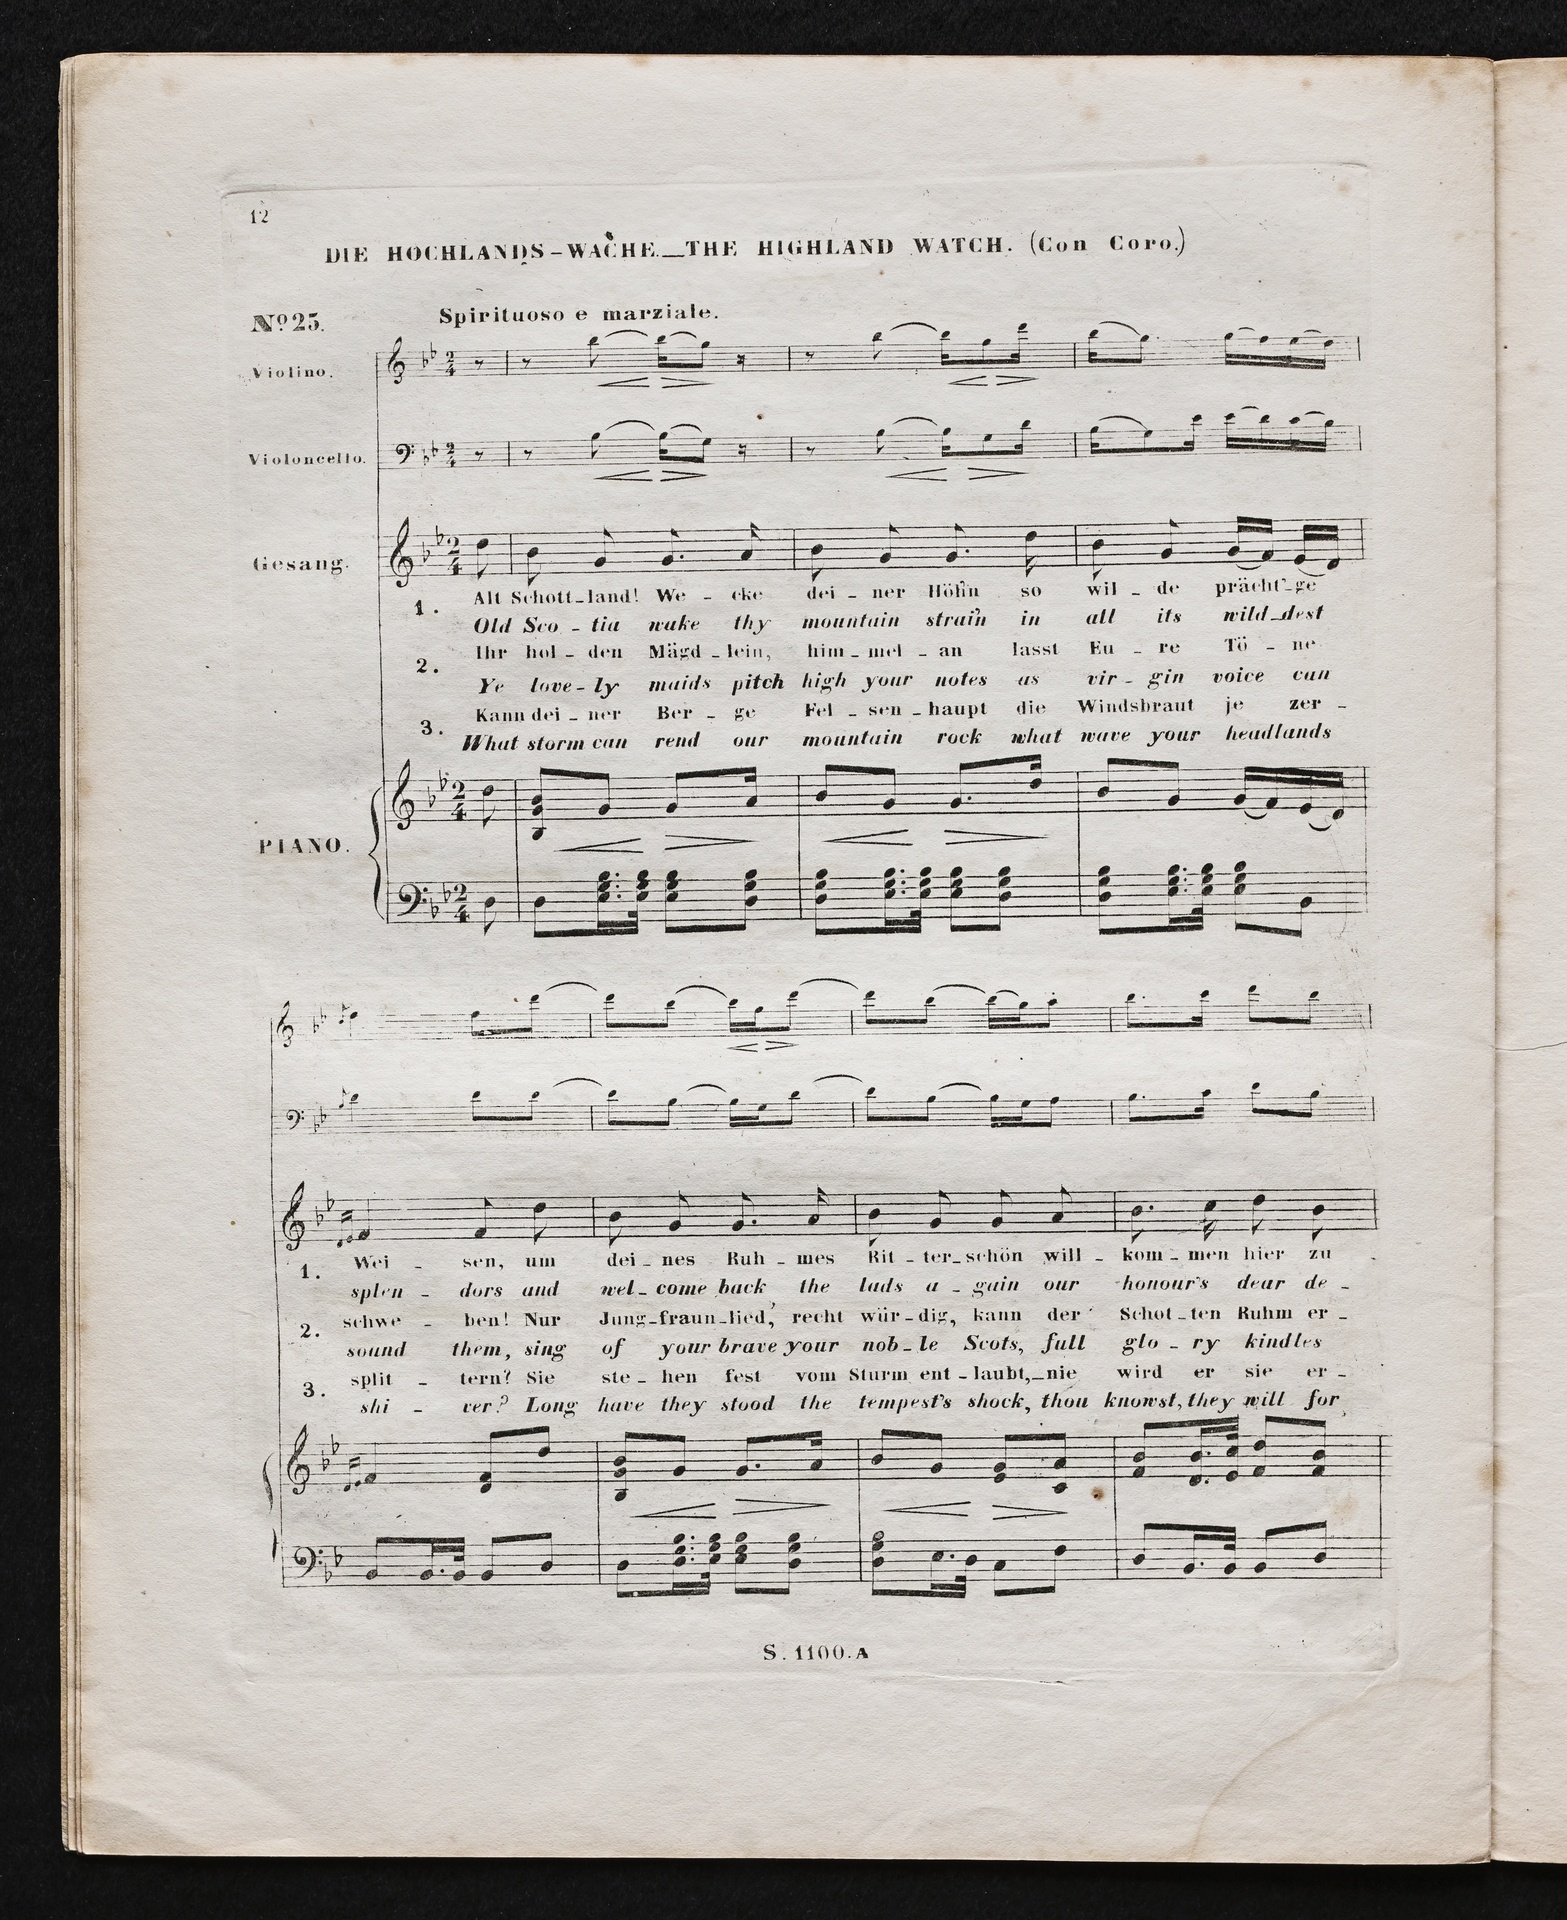 12
DIE HOCHLANDS-WACHE._THE HIGHLAND WATCH. (Con Coro.)
No. 25.
Spirituoso e marziale.
Violino.
Violoncello.
Gesang.
1. Alt Schott-land! We - cke dei - ner Höh'n so wil - de prächt'-ge
Old Sco - tia wake thy mountain strain in all its wild-dest
2. Ihr hol - den Mägd - lein, him - mel - an lasst Eu - re Tö - ne
Ye love - ly maids pitch high your notes as vir - gin voice can
3. Kann dei - ner Ber - ge Fel - sen - haupt die Windsbraut je zer -
What storm can rend our mountain rock what wave your headlands
PIANO.
1. Wei - sen, um dei - nes Ruh - mes Rit - ter - schön will - kom - men hier zu
splen - dors and wel - come back the lads a - gain our honour's dear de -
2. schwe - ben! Nur Jung-fraun-lied, recht wür - dig, kann der Schot - ten Ruhm er -
sound them, sing of your brave your nob - le Scots, full glo - ry kindles
3. split - tern? Sie ste - hen fest vom Sturm ent - laubt,-nie wird er sie er -
shi - ver? Long have they stood the tempest's shock, thou knowst, they will for
S. 1100. A